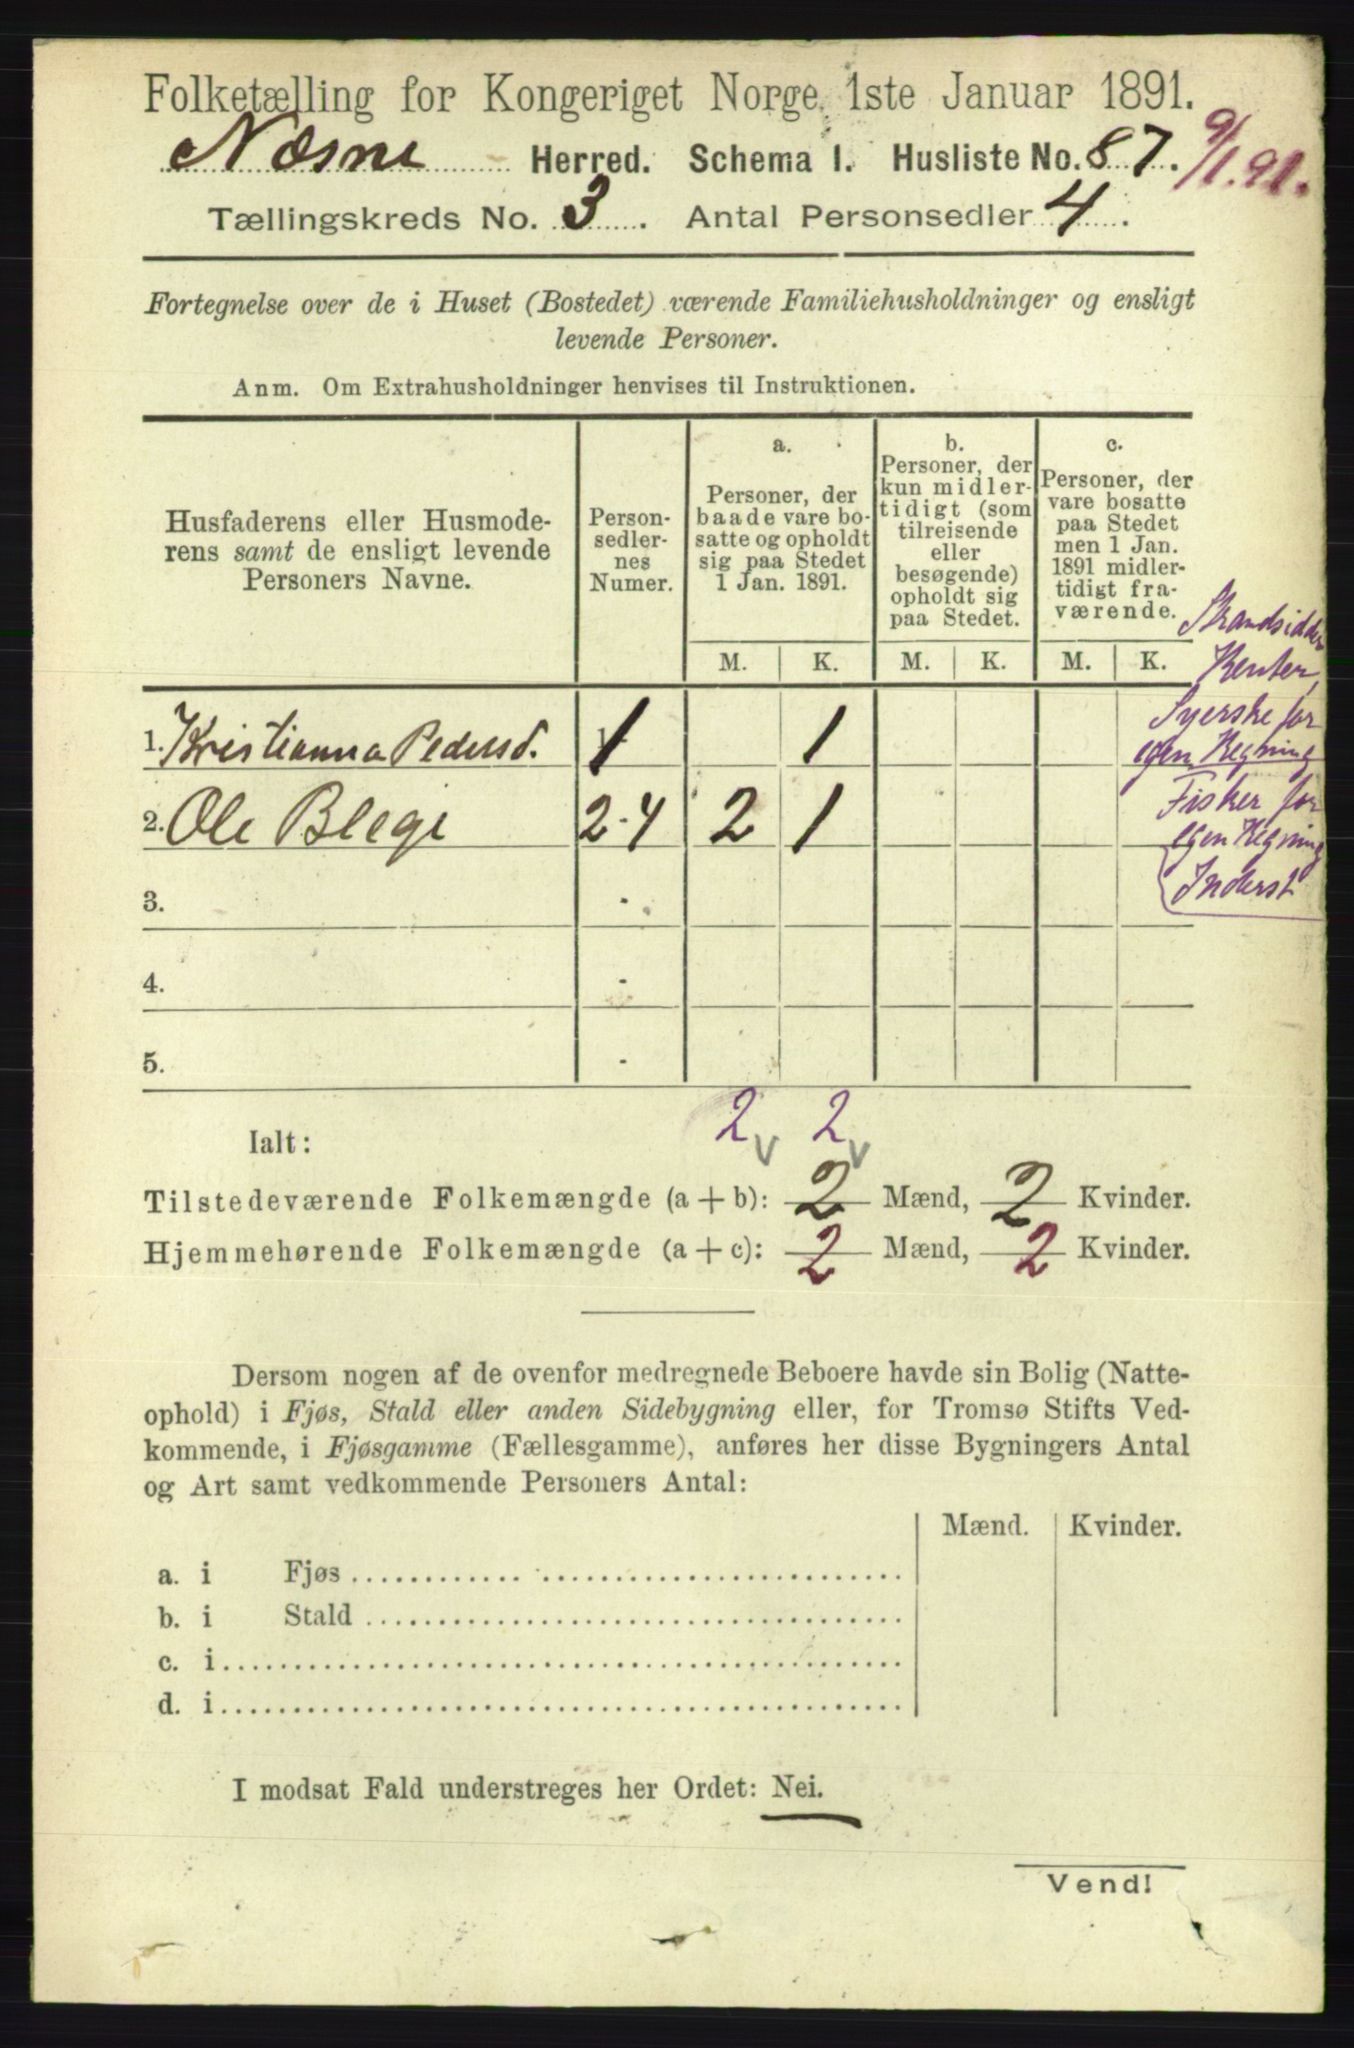 Folketælling for Kongeriget Norge 1ste Januar 1891.
Næsne Herred. Schema 1. Husliste No. 87. 9/1.91.
Tællingskreds No. 3. Antal Personsedler 4.
Fortegnelse over de i Huset (Bostedet) værende Familiehusholdninger og ensligt
levende Personer.
Anm. Om Extrahusholdninger henvises til Instruktionen.
Husfaderens eller Husmode-
rens samt de ensligt levende
Personers Navne.
Person-
sedler-
nes
Numer.
a.
Personer, der
baade vare bo-
satte og opholdt
sig paa Stedet
1 Jan. 1891.
b.
Personer, der
kun midler-
tidigt (som
tilreisende
eller
besøgende)
opholdt sig
paa Stedet.
c.
Personer, der
vare bosatte
paa Stedet
men 1 Jan.
1891 midler-
tidigt fra-
værende.
M. K. M. K. M. K.
Strandsidder
1. Kristianna Pedersd. 1 1
Syerske for
egen Regning
2. Ole Blegi 2-4 2 1
Fisker for
egen Regning
Inderst
3. -
4. -
5. -
2 v 2 v
Ialt:
Tilstedeværende Folkemængde (a + b): 2 Mænd, 2 Kvinder.
Hjemmehørende Folkemængde (a + c): 2 Mænd, 2 Kvinder.
Dersom nogen af de ovenfor medregnede Beboere havde sin Bolig (Natte-
ophold) i Fjøs, Stald eller anden Sidebygning eller, for Tromsø Stifts Ved-
kommende, i Fjøsgamme (Fællesgamme), anføres her disse Bygningers Antal
og Art samt vedkommende Personers Antal:
Mænd. Kvinder.
a. i Fjøs
b. i Stald
c. i
d. i
I modsat Fald understreges her Ordet: Nei.
Vend!